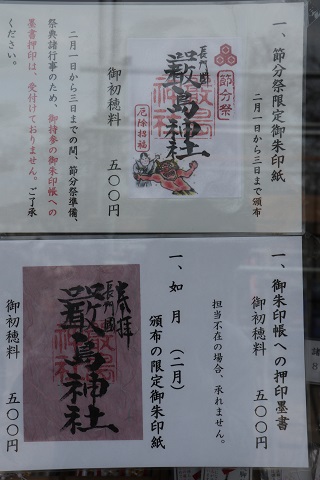 一、節分祭限定御朱印紙
二月一日から三日まで頒布
節分祭
長門國
嚴島神社
厄除招福
御初穂料 五〇〇円
二月一日から三日までの間、節分祭準備、
祭典諸行事のため、御持参の御朱印帳への
墨書押印は、受付けておりません。ご了承
ください。
一、御朱印帳への押印墨書
御初穂料 五〇〇円
担当不在の場合、承れません。
一、如月(二月)
頒布の限定御朱印紙
奉拝
長門國
嚴島神社
御初穂料 五〇〇円